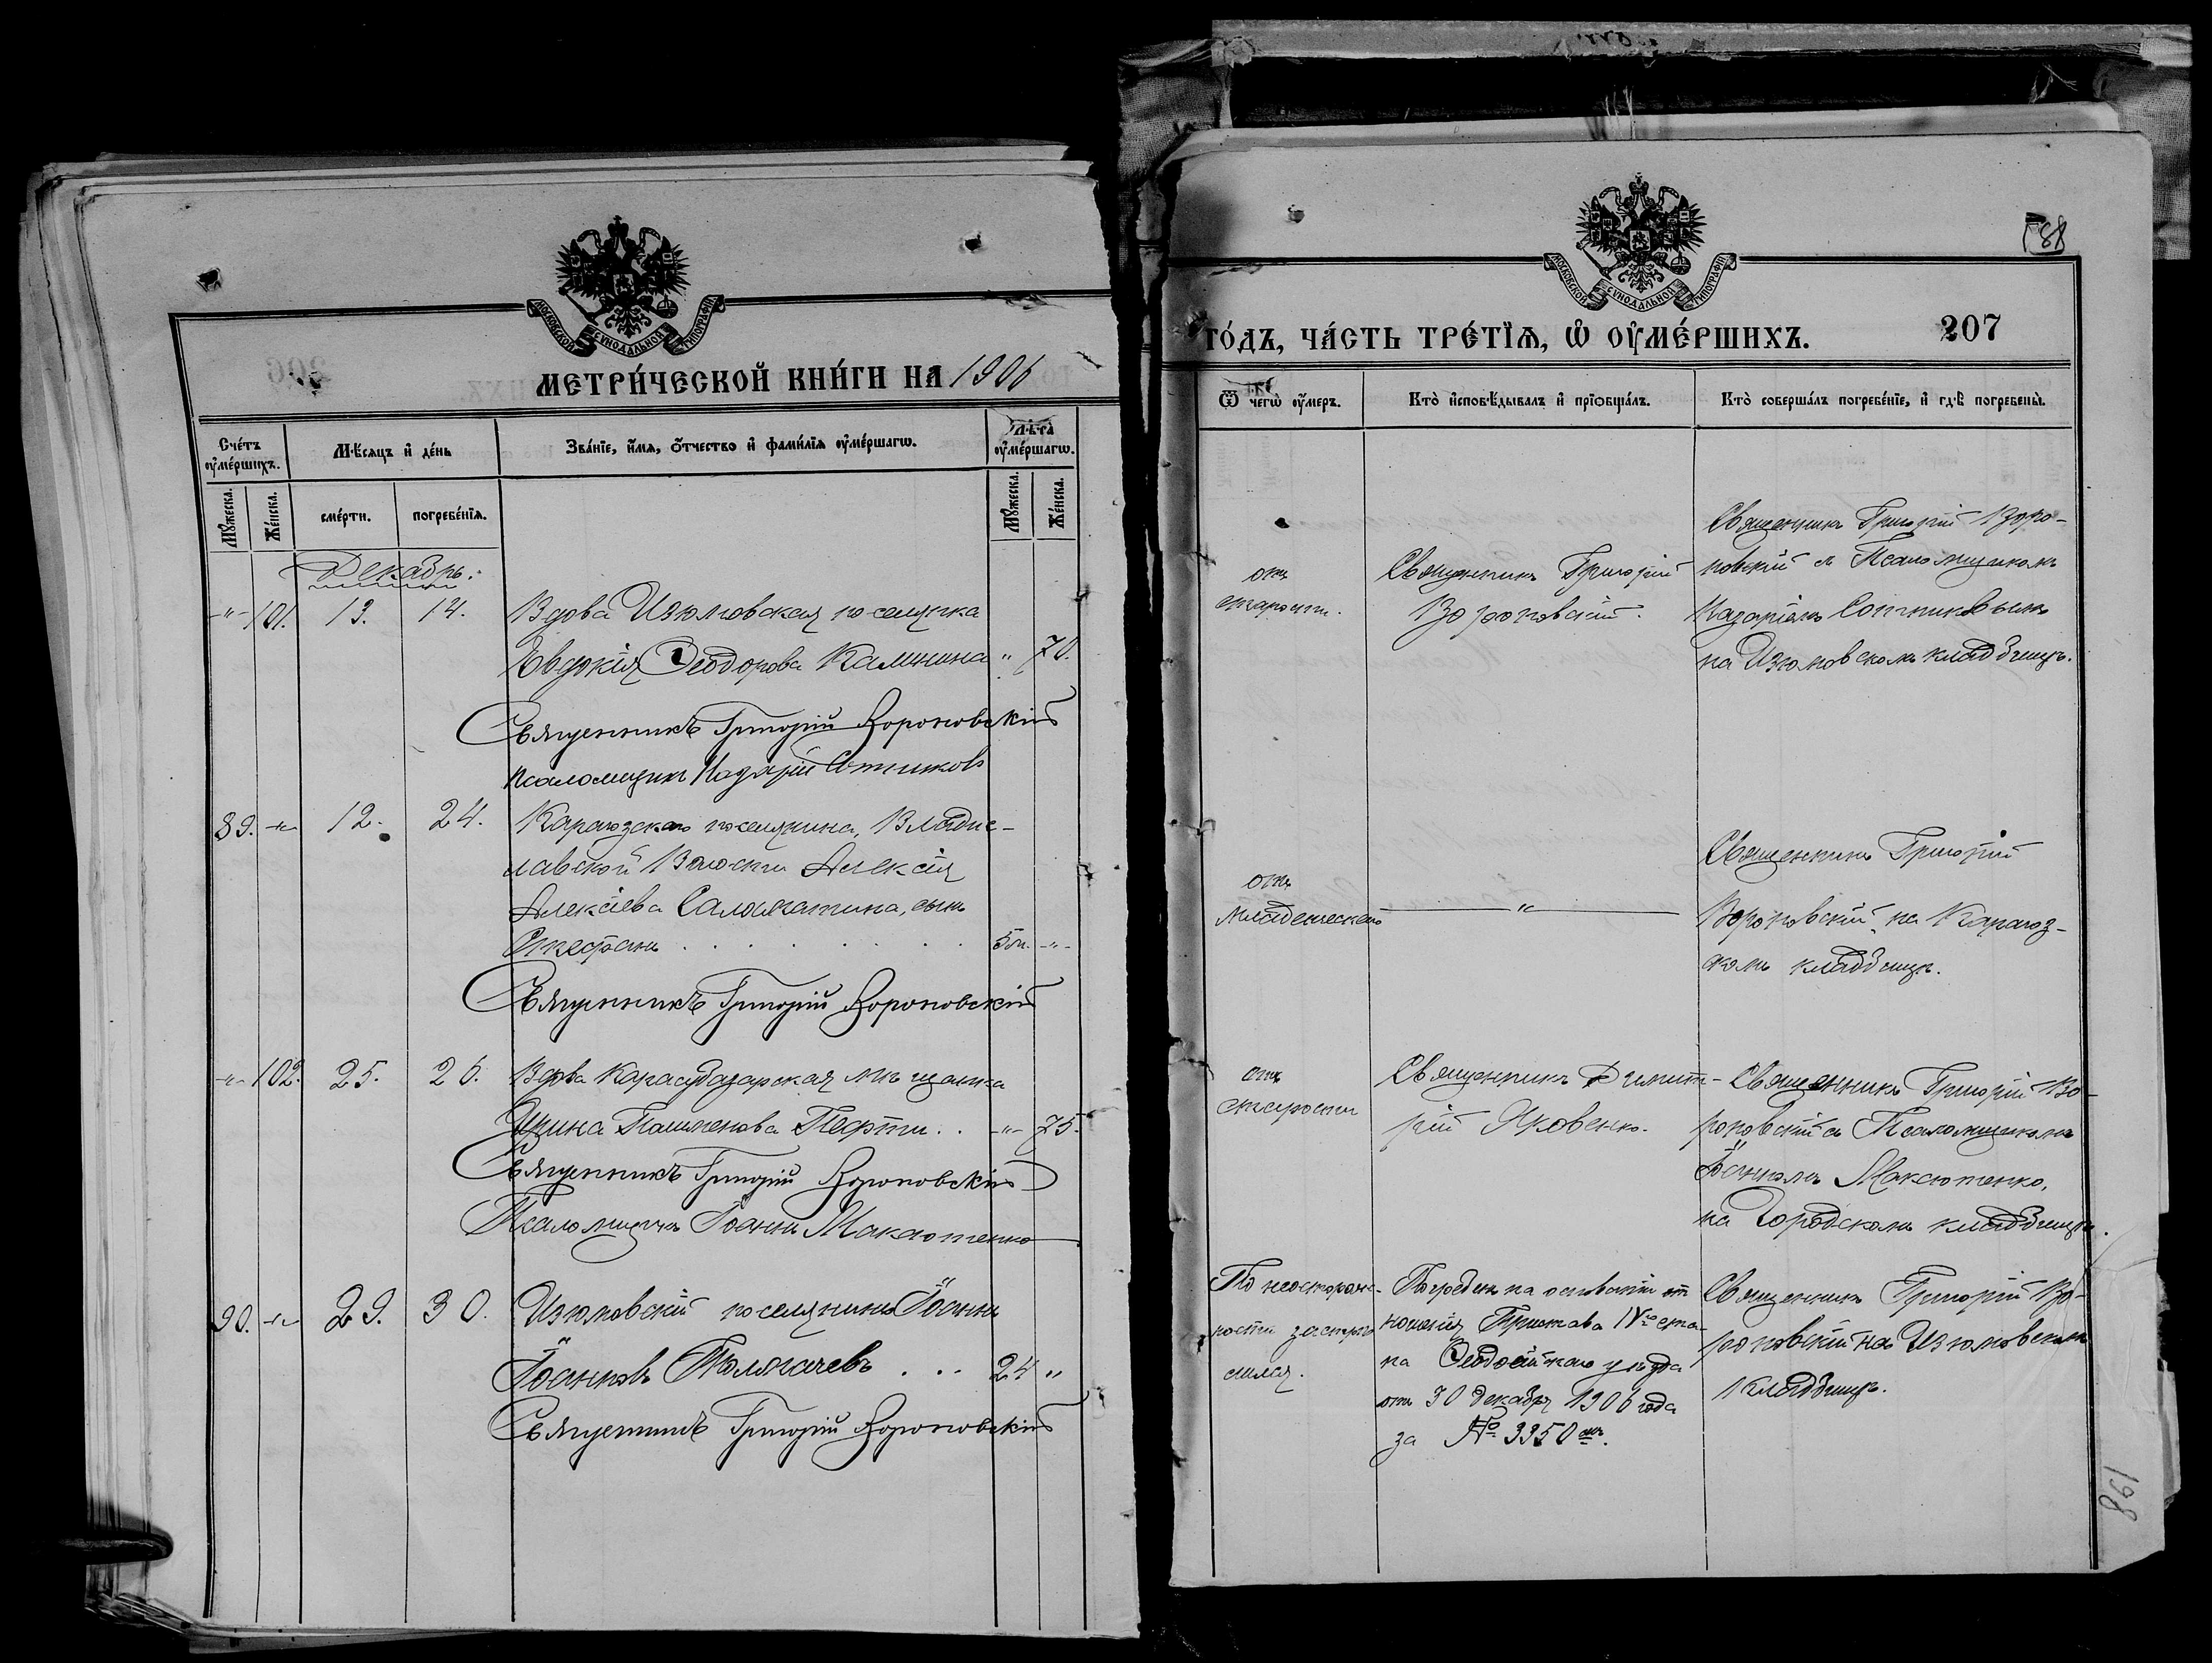 МОСКОВСКОЙ СУНОДАЛЬНОЙ ТИПОГРАФІИ
МЕТРИ́ЧЕСКОЙ КНИ́ГИ НА 1906
Сче́тъ ᲂу҆ме́ршихъ.
Мѣ́сяцъ и҆ де́нь
Зва́нїе, и҆́мѧ, ѻ҆́тчество и҆ фами́лїѧ ᲂу҆ме́ршагѡ.
Лѣ́та ᲂу҆ме́ршагѡ.
Мꙋ́жеска.
Же́нска.
сме́рти.
погребе́нїѧ.
Мꙋ́жеска.
Же́нска.
Декабрь.
-"- 101. 13. 14. Вдова Изюмовская поселянка
Евдокія Ѳеодорова Калинина " 70.
Священникъ Григорій Вороновскій
Псаломщикъ Назарій Сотников
89. -"- 12. 24. Карагозскаго поселянина, Владис-
лавской Волости Алексія
Алексіева Саломатина, сынъ
Стефанъ . . . . . . . 5 м. -"-
Священникъ Григорій Вороновскій
-"- 102. 25. 26. Вдова Карасубазарская мѣщанка
Ирина Пашменова Пефти . . -"- 75.
Священникъ Григорій Вороновскій
Псаломщикъ Іоаннъ Максютенко
90. -"- 29. 30. Изюмовскій поселянинъ Іоаннъ
Іоанновъ Толмачевъ . . . 24 "
Священникъ Григорій Вороновскій
188
МОСКОВСКОЙ СУНОДАЛЬНОЙ ТИПОГРАФІИ
ГО́ДЪ, ЧА́СТЬ ТРЕ́ТЇѦ, Ѡ҆ ОУ҆МЕ́РШИХЪ. 207
Ѿ чегѡ̀ ᲂу҆́меръ.
Кто̀ и҆сповѣ́дывалъ и҆ прїѡбща́лъ.
Кто̀ соверша́лъ погребе́нїе, и҆ гдѣ̀ погребены̀.
отъ
старости.
Священникъ Григорій
Вороновскій.
Священникъ Григорій Воро-
новскій съ Псаломщикомъ
Назаріемъ Сотниковымъ
на Изюмовскомъ кладбищѣ.
отъ
младенческаго
"
Священникъ Григорій
Вороновскій, на Карагоз-
скомъ кладбищѣ.
отъ
старости
Священникъ Димит-
рій Яковенко.
Священникъ Григорій Во-
роновскій съ Псаломщикомъ
Іоанномъ Максютенко,
на Городскомъ кладбищѣ.
По неосторож-
ности застре-
лился.
Погребенъ на основаніи от
ношенія Пристава IV го ста-
на Ѳеодосійскаго уѣзда
отъ 30 декабря 1906 года
за № 3350 мъ.
Священникъ Григорій Во-
роновскій на Изюмовскомъ
кладбищѣ.
198